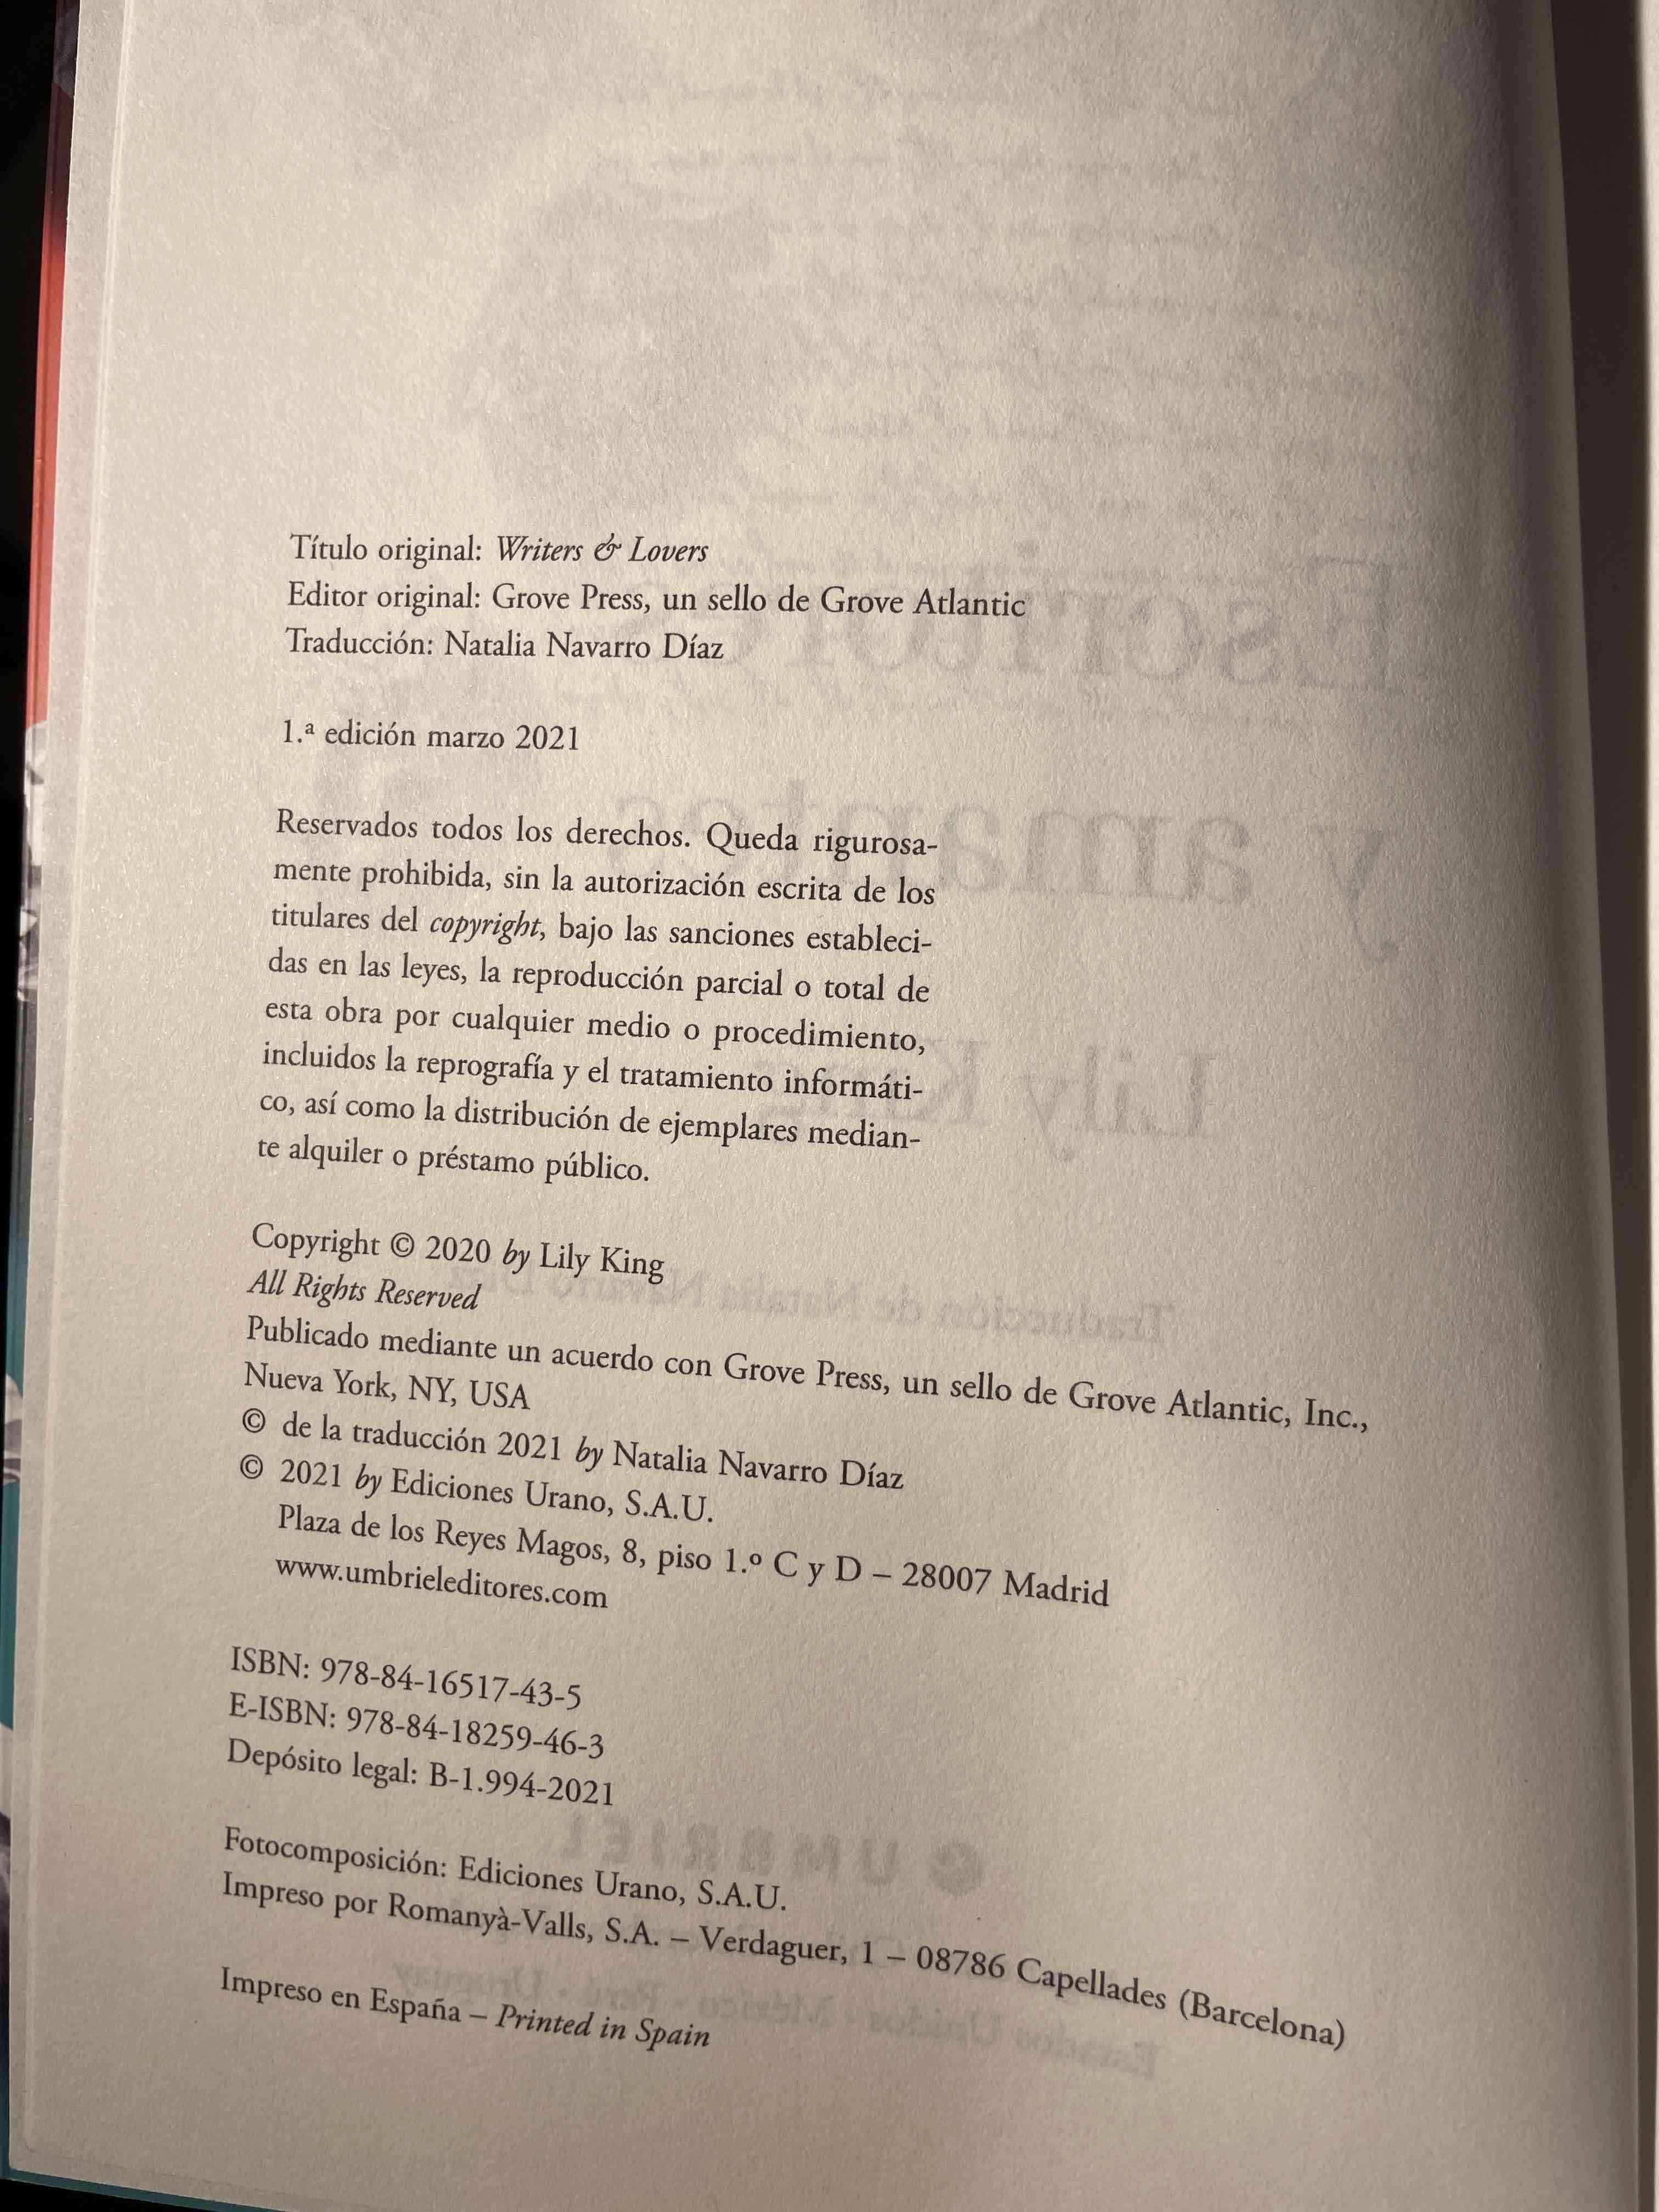 Título original: Writers & Lovers
Editor original: Grove Press, un sello de Grove Atlantic
Traducción: Natalia Navarro Díaz
1.ª edición marzo 2021
Reservados todos los derechos. Queda rigurosa-
mente prohibida, sin la autorización escrita de los
titulares del copyright, bajo las sanciones estableci-
das en las leyes, la reproducción parcial o total de
esta obra por cualquier medio o procedimiento,
incluidos la reprografía y el tratamiento informáti-
co, así como la distribución de ejemplares median-
te alquiler o préstamo público.
Copyright © 2020 by Lily King
All Rights Reserved
Publicado mediante un acuerdo con Grove Press, un sello de Grove Atlantic, Inc.,
Nueva York, NY, USA
© de la traducción 2021 by Natalia Navarro Díaz
© 2021 by Ediciones Urano, S.A.U.
Plaza de los Reyes Magos, 8, piso 1.º C y D – 28007 Madrid
www.umbrieleditores.com
ISBN: 978-84-16517-43-5
E-ISBN: 978-84-18259-46-3
Depósito legal: B-1.994-2021
Fotocomposición: Ediciones Urano, S.A.U.
Impreso por Romanyà-Valls, S.A. – Verdaguer, 1 – 08786 Capellades (Barcelona)
Impreso en España – Printed in Spain